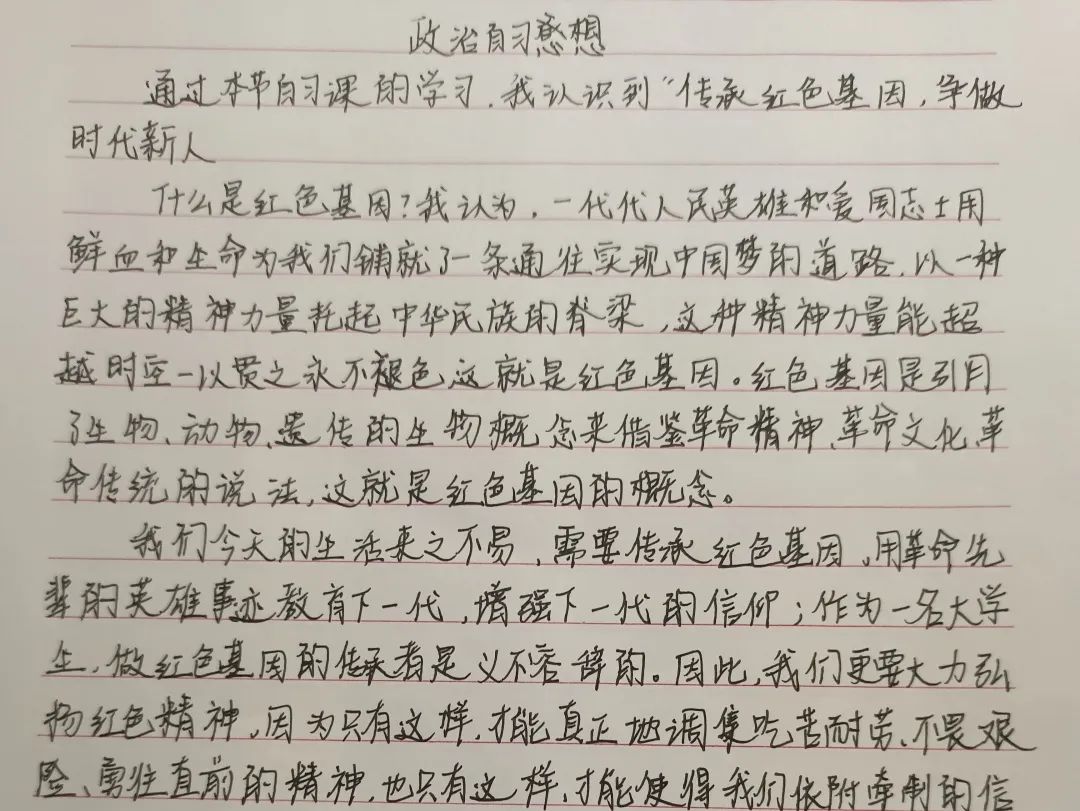 政治自习感想
通过本节自习课的学习，我认识到“传承红色基因，争做
时代新人
什么是红色基因？我认为，一代代人民英雄和爱国志士用
鲜血和生命为我们铺就了一条通往实现中国梦的道路，以一种
巨大的精神力量托起中华民族的脊梁，这种精神力量能超
越时空一以贯之永不褪色，这就是红色基因。红色基因是引用
了生物、动物、遗传的生物概念来借鉴革命精神、革命文化、革
命传统的说法，这就是红色基因的概念。
我们今天的生活来之不易，需要传承红色基因，用革命先
辈的英雄事迹教育下一代，增强下一代的信仰；作为一名大学
生，做红色基因的传承者是义不容辞的。因此，我们更要大力弘
扬红色精神，因为只有这样，才能真正地调集吃苦耐劳、不畏艰
险、勇往直前的精神，也只有这样，才能使得我们依附牵制的信